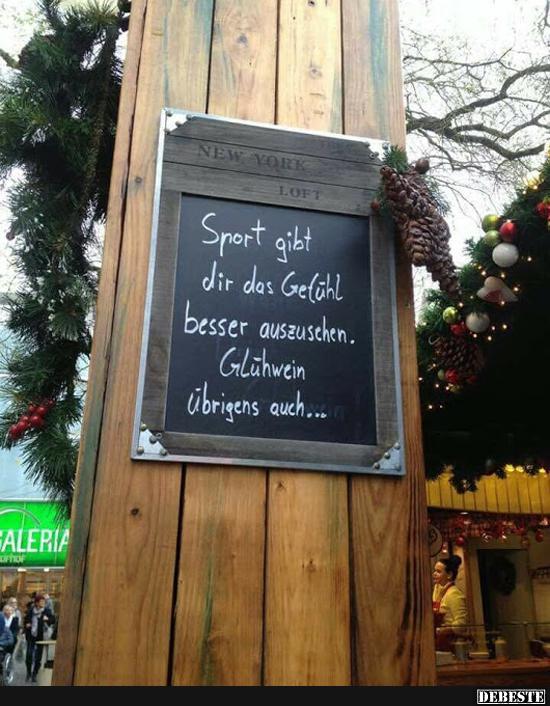 NEW YORK
LOFT
Sport gibt
dir das Gefühl
besser auszusehen.
Glühwein
übrigens auch...
GALERIA
DEBESTE